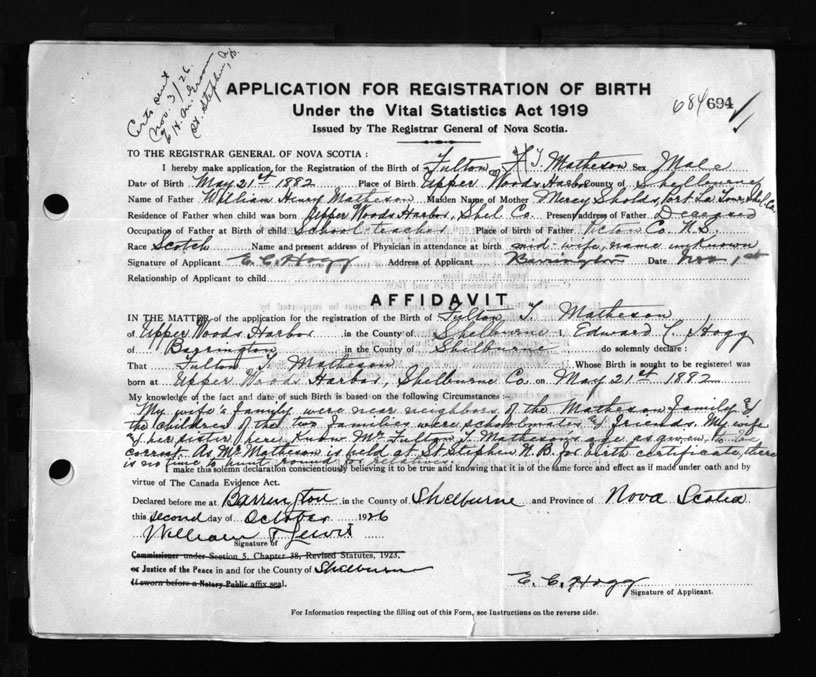 Certs sent
Nov. 3/26.
E H.
St. Stephen, N.B.
APPLICATION FOR REGISTRATION OF BIRTH
684 694
Under the Vital Statistics Act 1919
Issued by The Registrar General of Nova Scotia.
TO THE REGISTRAR GENERAL OF NOVA SCOTIA :
I hereby make application for the Registration of the Birth of Fulton T. Matheson Sex Male
Date of Birth May 21st 1882 Place of Birth Upper Woods Harbor County of Shelburne
Name of Father William Henry Matheson Maiden Name of Mother Mercy Sholds, Port La Tour, Shel Co.
Residence of Father when child was born Upper Woods Harbor, Shel Co. Present address of Father Deceased
Occupation of Father at Birth of child School-teacher Place of birth of Father Co. N.S.
Race Scotch Name and present address of Physician in attendance at birth mid-wife, name unknown
Signature of Applicant E. C. Hogg Address of Applicant Barrington Date Nov 1st
Relationship of Applicant to child
AFFIDAVIT
IN THE MATTER of the application for the registration of the Birth of Fulton T. Matheson
of Upper Woods Harbor in the County of Shelburne I, Edward C. Hogg
of Barrington in the County of Shelburne do solemnly declare :
That Fulton T. Matheson Whose Birth is sought to be registered was
born at Upper Woods Harbor, Shelburne Co. on May 21st 1882
My knowledge of the fact and date of such Birth is based on the following Circumstances :-
My wife's family were near neighbors of the Matheson family &
the children of the two families were schoolmates & friends. My wife
& her sister here know Mr Fulton T. Matheson's age as given to be
correct. As Mr Matheson is held at St Stephen N.B. for birth certificate, there
is no time to hunt round for relatives.
I make this solemn declaration conscientiously believing it to be true and knowing that it is of the same force and effect as if made under oath and by
virtue of The Canada Evidence Act.
Declared before me at Barrington in the County of Shelburne and Province of Nova Scotia
this second day of October 1926
William T Lewis
Signature of
Commissioner under Section 5, Chapter 38, Revised Statutes, 1923.
or Justice of the Peace in and for the County of Shelburne
If sworn before a Notary Public affix seal.
E. C. Hogg
Signature of Applicant.
For Information respecting the filling out of this Form, see Instructions on the reverse side.